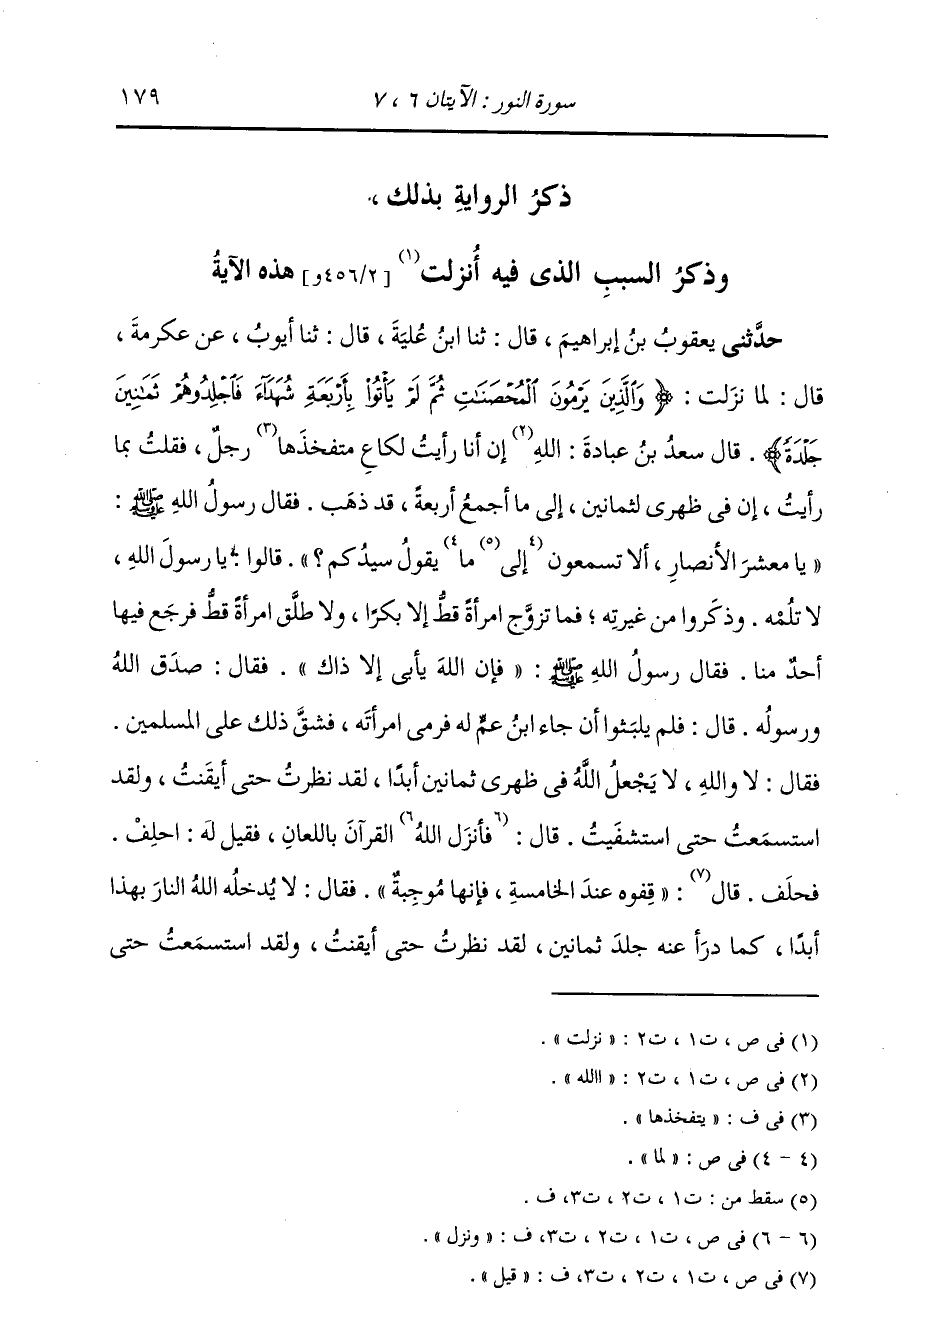 سورة النور : الآيتان ٦ ، ٧
١٧٩
ذكرُ الروايةِ بذلك ،
وذكرُ السببِ الذى فيه أُنزلت(١) [٤٥٦/٢و] هذه الآيةُ
حدَّثنى يعقوبُ بنُ إبراهيمَ ، قال : ثنا ابنُ عُليَةَ ، قال : ثنا أيوبُ ، عن عكرمةَ ،
قال : لما نزَلت : ﴿ وَٱلَّذِينَ يَرْمُونَ ٱلْمُحْصَنَٰتِ ثُمَّ لَمْ يَأْتُوا۟ بِأَرْبَعَةِ شُهَدَآءَ فَٱجْلِدُوهُمْ ثَمَٰنِينَ
جَلْدَةً﴾ . قال سعدُ بنُ عبادةَ : اللهِ(٢) إن أنا رأيتُ لكاعِ متفخذَها(٣) رجلٌ ، فقلتُ بما
رأيتُ ، إن فى ظهرى لثمانين ، إلى ما أجمعُ أربعةً ، قد ذهَب . فقال رسولُ اللهِ ﷺ :
« يا معشرَ الأنصارِ ، ألا تسمعون (٤)إلى(٥) ما(٤) يقولُ سيدُكم ؟ » . قالوا : يا رسولَ اللهِ ،
لا تلُمْه . وذكَروا من غيرتِه ؛ فما تزوَّج امرأةً قطُّ إلا بكرًا ، ولا طلَّق امرأةً قطُّ فرجَع فيها
أحدٌ منا . فقال رسولُ اللهِ ﷺ : « فإن اللهَ يأبى إلا ذاك » . فقال : صدَق اللهُ
ورسولُه . قال : فلم يلبَثوا أن جاء ابنُ عمٍّ له فرمى امرأتَه ، فشقَّ ذلك على المسلمين .
فقال : لا واللهِ ، لا يَجْعلُ اللَّهُ فى ظهرى ثمانين أبدًا ، لقد نظرتُ حتى أيقَنتُ ، ولقد
استسمَعتُ حتى استشفَيتُ . قال : (٦)فأنزَل اللهُ(٦) القرآنَ باللعانِ ، فقيل لَه : احلِفْ .
فحلَف . قال(٧) : « قِفوه عندَ الخامسةِ ، فإنها مُوجِبةٌ » . فقال : لا يُدخلُه اللهُ النارَ بهذا
أبدًا ، كما درَأ عنه جلدَ ثمانين ، لقد نظرتُ حتى أيقنتُ ، ولقد استسمَعتُ حتى
(١) فى ص ، ت١ ، ت٢ : « نزلت » .
(٢) فى ص ، ت١ ، ت٢ : « االله » .
(٣) فى ف : « يتفخذها » .
(٤ - ٤) فى ص : « لما » .
(٥) سقط من : ت١ ، ت٢ ، ت٣، ف .
(٦ - ٦) فى ص ، ت١ ، ت٢ ، ت٣، ف : « ونزل » .
(٧) فى ص ، ت١ ، ت٢ ، ت٣، ف : « قيل » .